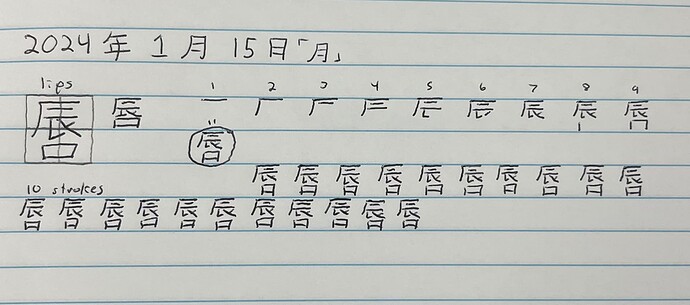 2024年 1月 15日「月」
lips 1 2 3 4 5 6 7 8 9
唇 唇 一 厂
唇
唇 唇 唇 唇 唇 唇 唇 唇 唇 唇
10 strokes
唇 唇 唇 唇 唇 唇 唇 唇 唇 唇 唇